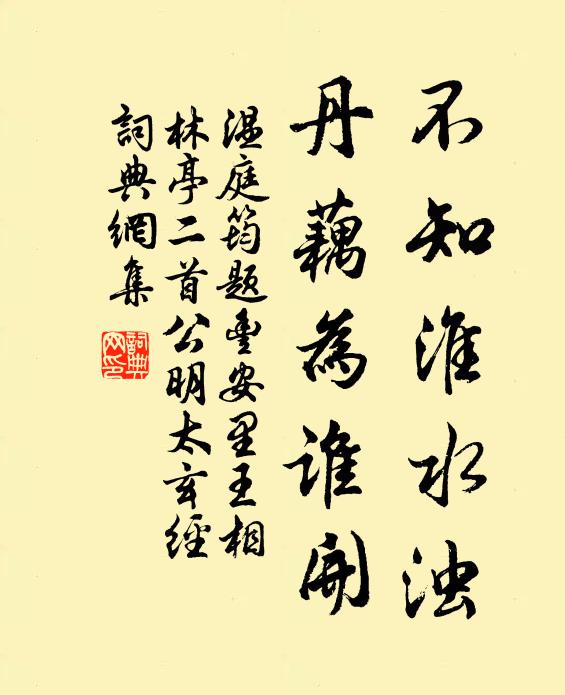 不知淮水浊
丹藕为谁开
温庭筠题豊安里王相
林亭二首公明太玄经
词典网集
词典网印